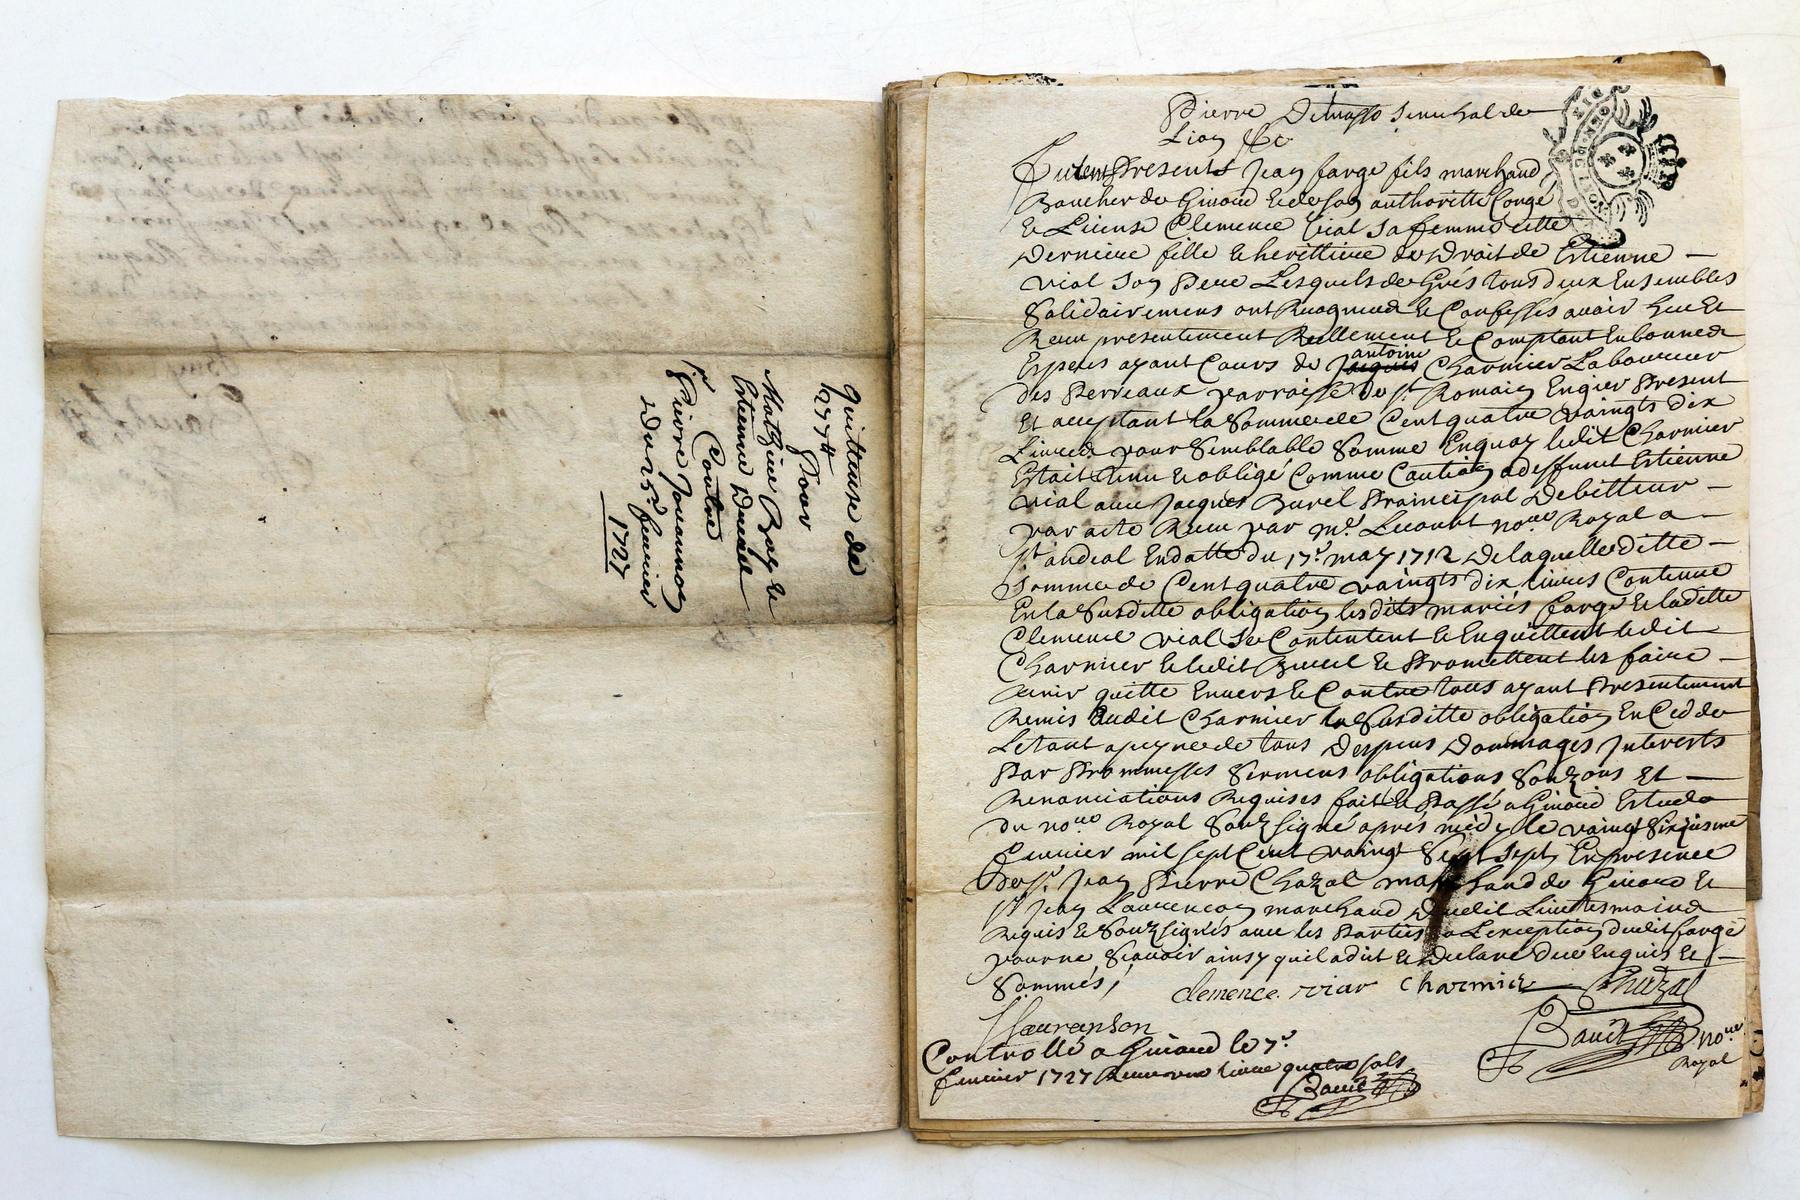 Quittense de
277#
Pour
Mathieu Boy &
Estienne
Contre
Sr Pierre Jouannon
Du 25e fevrier
1727
Pierre senechal de
Lion &c
Furent Presents Jean farge fils marchand
Boucher de Givord & de son authoritté Congé
& License Clemence Vial sa femme cette
Derniere fille & herittiere de Droit de Estienne
vial son Pere Lesquels de Grés tous deux Ensembles
Solidairemens ont & Confessés avoir heu Et
Receu presentement Reellement & Comptant En bonnes
Especes ayant Cours de antoine Charmier Laboureur
des Perreaux parroisse de St Romain Engier Present
Et acceptant la Somme de Cent quatre vaingts dix
Livres pour Semblable Somme Enquoy ledit Charmier
Estait tenu & obligé Comme Caution a deffunct Estienne
vial avec Jacques Burel Praincipal Debitteur
par acte Receu par me noue Royal a
St andeol En datte du 17e may 1712 De laquelle ditte
Somme de Cent quatre vaingts dix livres Contenue
En la Susditte obligation lesdits mariés farge & laditte
Clemence vial Se Contentent & Enquittent ledit
Charmier & ledit Burel & Promettent les faire
tenir quitte Envers & Contre tous ayant Presentement
Remis audit Charmier la Susditte obligation
a peyne de tous Despens Dommages Interests
Par Prommesses Sermens obligations Et
Renonciations Requises fait & Passé a Givord Estude
du noue Royal Soubzsigné aprés midy le vaingt Sixiesme
fevrier mil Sept Cent vaingt Sept En presence
de Sr Jean Pierre Chazal marchand de Givord &
Sr Jean Laurencon marchand Dudit Lieu tesmoins
Requis & Soubzsignés avec les Parties a Lexception dudit farge
pour ne Scavoir ainsy quil a dit & Declaré Duement Enquis &
Sommés,
Clemence viar Charmier Chazal
J Lauranson
Bauet noue
Royal
Controllé a Givord le 7e
fevrier 1727 Receu une livre quatre sols
Bauet